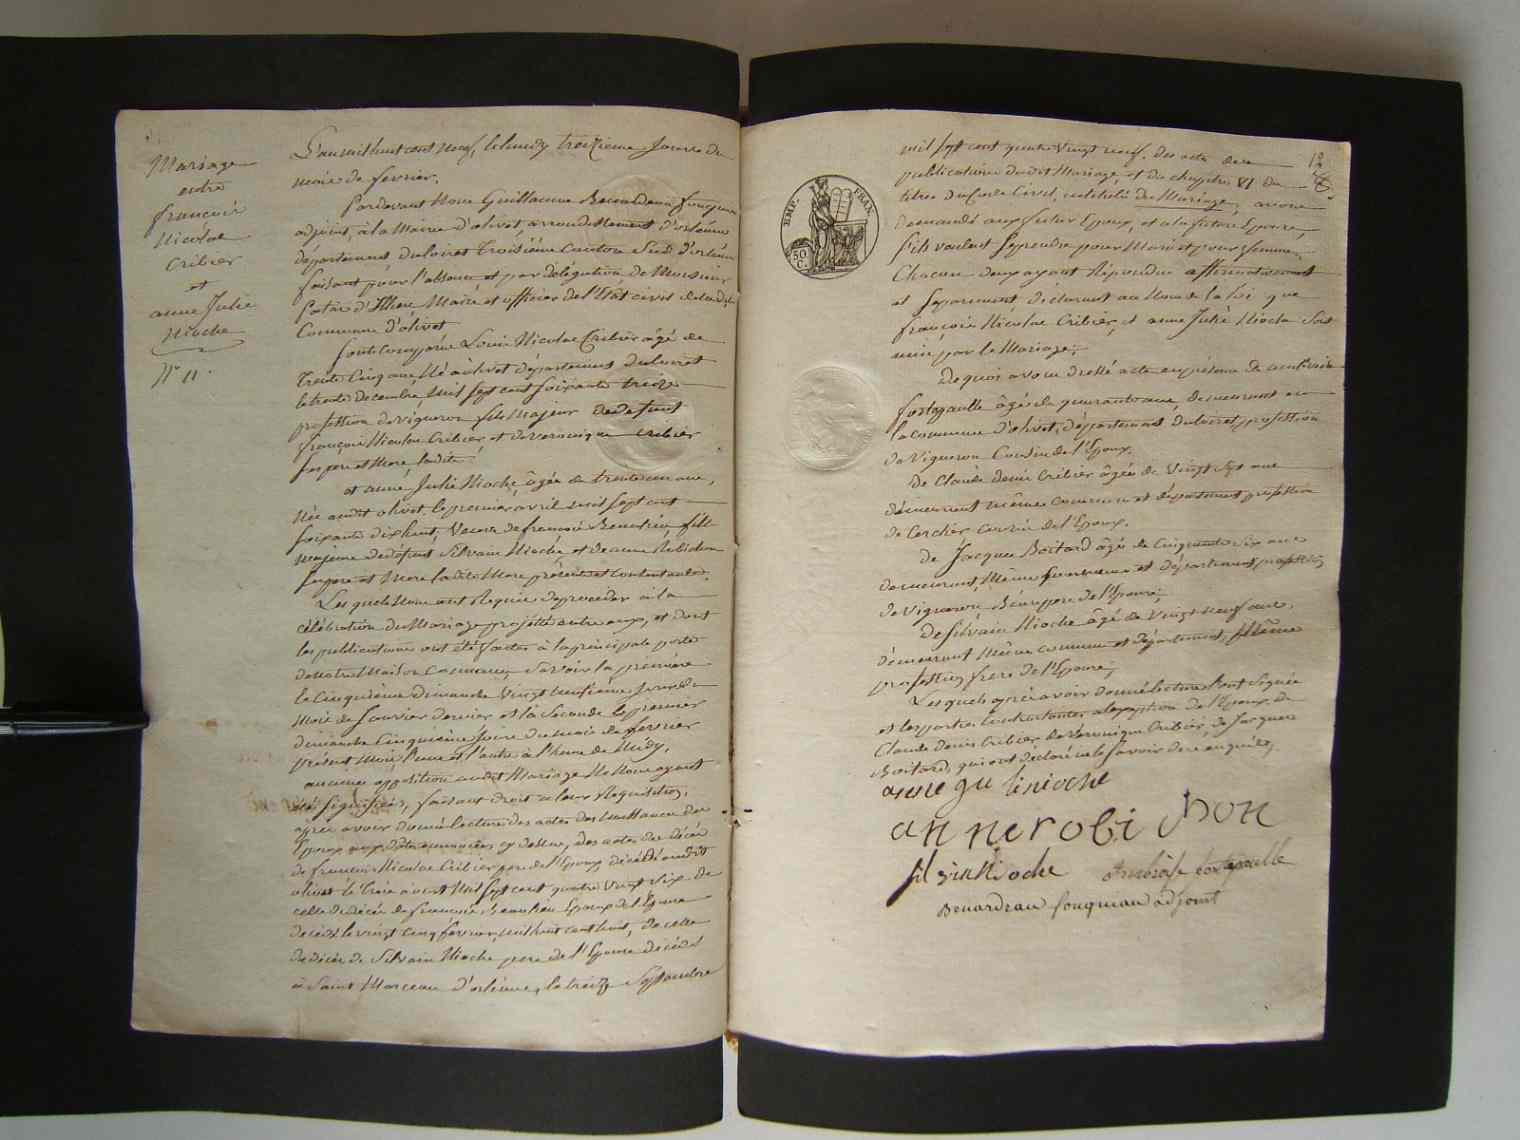 Mariage
entre
françois
Nicolas
Cribier
et
anne Julie
Nioche
N° 11.
L'an mil huit cent neuf, le lundy treizieme Jour du
mois de fevrier.
Pardevant Nous Guillaume Benardeau fouqueau
adjoint, à la Mairie d'olivet, arrondissement d'orléans
département du loiret Troisième Canton Sud d'orléans
faisant pour l'absence et par délégation de Monsieur
d'Illiers Maire et officier de l'Etat civil de ladite
Commune d'olivet
sont Comparus Louis Nicolas Cribier âgé de
trente Cinq ans, Né à olivet département du loiret
le trente decembre mil sept cent soixante treize
profession de vigneron fils majeur de defunt
françois Nicolas Cribier, et de veronique Cribier
ses pere et Mere
et anne Julie Nioche, âgée de trente ans,
Née audit olivet, le premier avril mil sept cent
soixante dix huit, Veuve de françois Beaulieu, fille
majeure de défunt Silvain Nioche et de anne Robichon
ses pere et Mere ladite Mere présente et consentante.
Lesquels Nous ont Requis de procéder à la
célébration du Mariage projetté entre eux, et dont
les publications ont été faites à la principale porte
de notre Maison Commune, Savoir la première
le Cinquième dimanche Vingt Neufième Jour du
Mois de Janvier dernier et la Seconde le premier
dimanche Cinquième Jour du mois de fevrier
présent Mois, l'une et l'autre à l'heure de Midy,
aucune opposition audit Mariage Ne Nous ayant
été signifiée, faisant droit à leur Requisition,
après avoir donné lecture des actes de Naissance des
Epoux aux dates énoncées cy dessus, des actes de décès
de françois Nicolas Cribier pere de l'Epoux décédé audit
olivet le Treize aoust Mil sept cent quatre Vingt Six, de
celle de décès de françois Beaulieu Epoux de l'Epouse
decédé le vingt Cinq fevrier, mil huit cent huit, de celle
de décès de Silvain Nioche pere de l'Epouse décédé
à Saint Marceau d'orléans, le treize Septembre
12
EMP. FRAN.
50 C.
mil sept cent quatre Vingt neuf. des actes de
publications dudit Mariage, et du chapitre VI du
titre du Code Civil, intitulé du Mariage, avons
demandé aux futur Epoux, et à la future Epouse,
s'ils veulent se prendre pour Mari et pour femme,
Chacun deux ayant Répondu affirmativement
et Séparement, déclarons au Nom de la loi que
françois Nicolas Cribier, et anne Julie Nioche Sont
unis par le Mariage;
De quoi avons dressé acte en présence de ambroise
fortepaulle âgé de quarante ans, demeurant en
la commune d'olivet, département du loiret, profession
de Vigneron Cousin de l'Epoux.
De Claude denis Cribier âgé de Vingt Sept ans
demeurant même commune et département profession
de Cerclier Cousin de l'Epoux.
De Jacques Boitard âgé de Cinquante Six ans
demeurant, Même Commune et département profession
de Vigneron, Beau pere de l'Epouse;
De Silvain Nioche âgé de Vingt Neuf ans,
demeurant Même commune et département, Même
profession, frere de l'Epouse;
Lesquels après avoir donné lecture l'ont Signée
et les parties Contractantes a l'exception de l'Epoux, de
Claude Denis Cribier de Véronique Cribier, de Jacques
Boitard, qui ont déclaré ne le Savoir de ce enquis,
anne gulienioche
annerobichon
silvin Nioche ambroise fortepaulle
Benardeau fouqueau adjoint